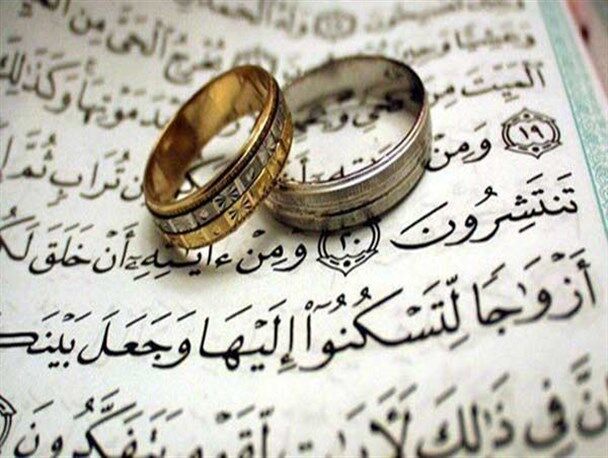 وَعَشِيًّا وَحِينَ يُخْرِجُ ٱلْحَىَّ مِنَ
ٱلْمَيِّتَ مِنَ مَوْتِهَا وَكَذَٰلِكَ
١٩ وَمِنْ تُرَابٍ ثُمَّ
تَنتَشِرُونَ ٢٠ وَمِنْ ءَايَٰتِهِۦٓ أَنْ خَلَقَ لَكُ
أَزْوَٰجًا لِّتَسْكُنُوٓا۟ إِلَيْهَا وَجَعَلَ بَيْنَكُ
نَّ فِى ذَٰلِكَ لَءَايَٰتٍ لِّقَوْمٍ يَتَفَكَّرُونَ